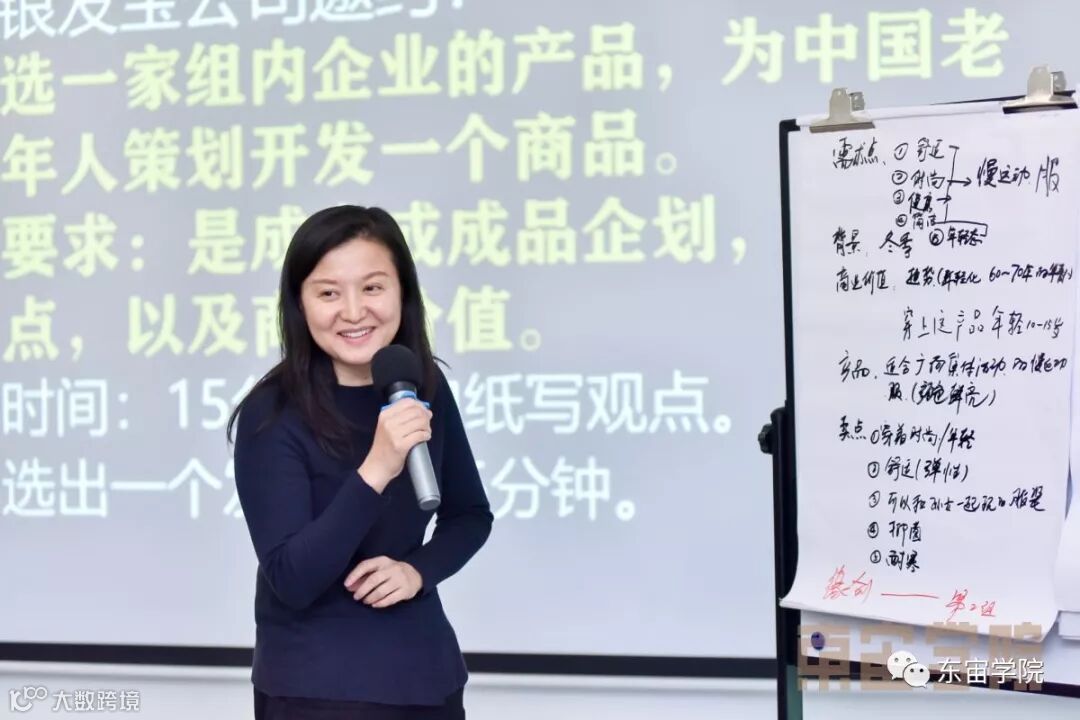 银发宝公司邀约：
选一家组内企业的产品，为中国老
年人策划开发一个商品。
要求：是成 或成品企划，
点，以及商 价值。
时间：15 纸写观点。
选出一个 分钟。
需求点、① 舒适
② 时尚 慢运动服
③ 健康
④ 简洁
⑤ 年轻态
背景、冬季
商业价值、趋势(年轻化 60~70年
穿上这产品年轻10-15岁
产品、适合广场集体活动的慢运动
服、(颜色鲜亮)
卖点 ①穿着时尚/年轻
② 舒适(弹性)
③ 可以和孙女一起玩的服装
④ 抑菌
⑤ 耐寒
缘创 —— 第2组
东宙学院
东宙学院
大数跨境